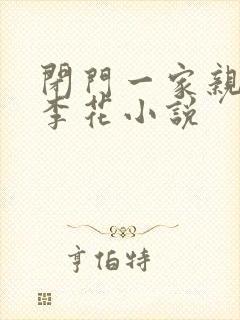 閉門一家親
李花小說
亨伯特